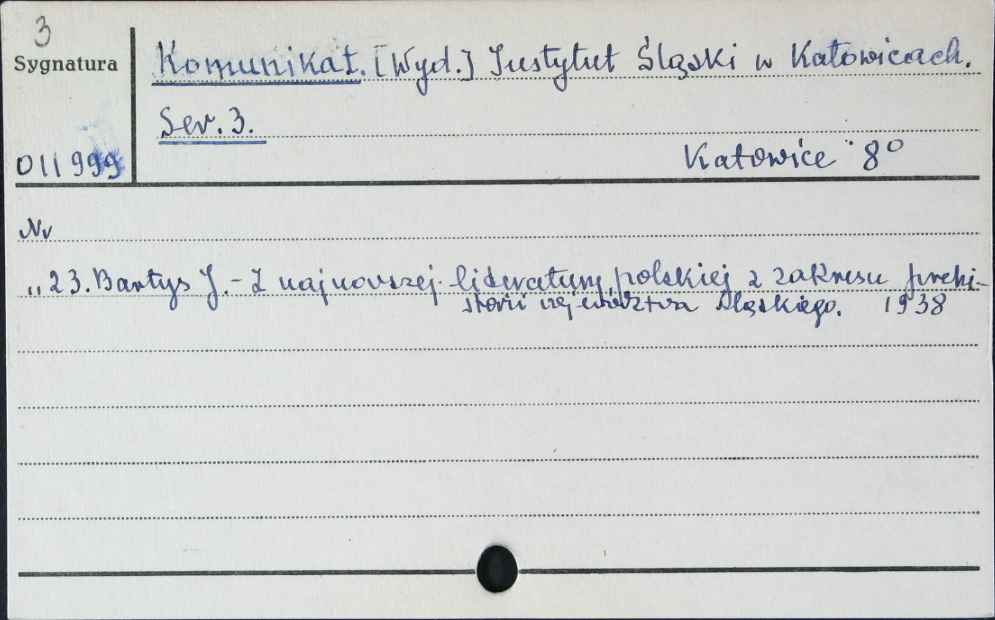 3
Sygnatura
Komunikat. [Wyd.] Instytut Śląski w Katowicach.
Ser. 3.
011999
Katowice 8°
Nr
„23. Bartys J. - Z najnowszej literatury polskiej z zakresu prehi-
storii województwa Śląskiego. 1938